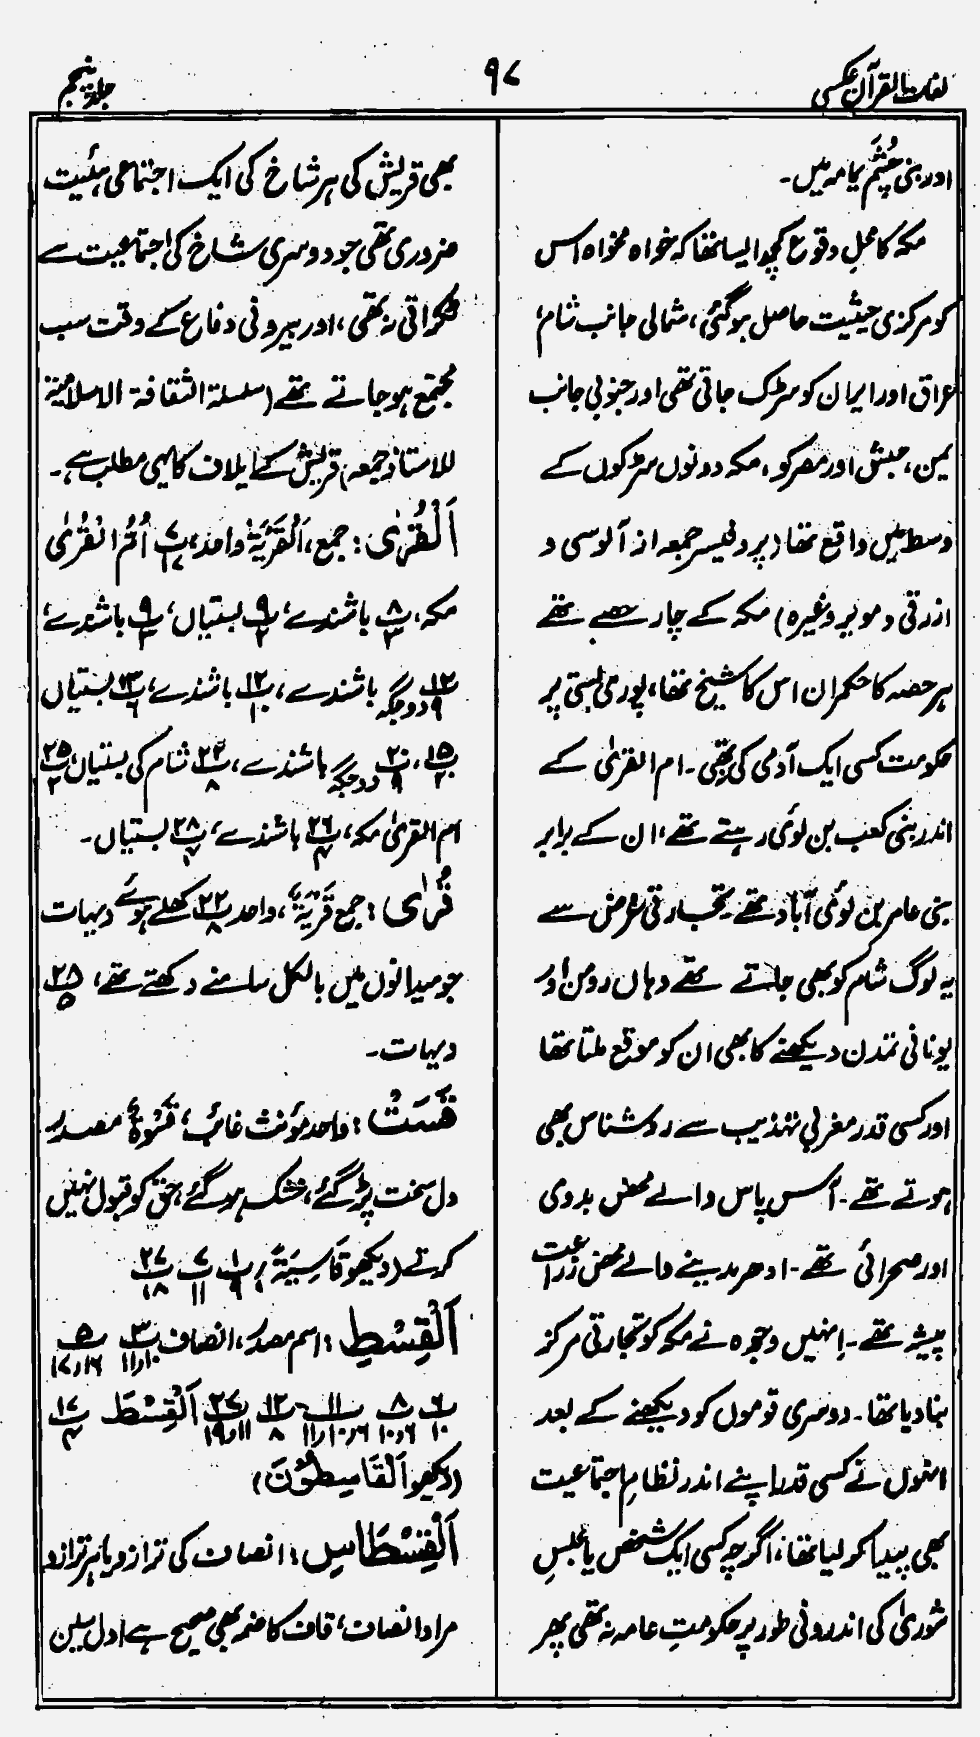 لغات القرآن عکسی
۹۷
جلد پنجم
اور بنی جُشَم یمامہ میں۔
مکہ کا محلِ وقوع کچھ ایسا تھا کہ خواہ مخواہ اس
کو مرکزی حیثیت حاصل ہوگئی، شمالی جانب شام،
عراق اور ایران کو سڑک جاتی تھی اور جنوبی جانب
یمن، حبش اور مصر کو، مکہ دونوں سڑکوں کے
وسط میں واقع تھا (پروفیسر جمعہ از آلوسی و
ازرقی و موبر وغیرہ) مکہ کے چار حصے تھے
ہر حصہ کا حکمران اس کا شیخ تھا، پوری بستی پر
حکومت کسی ایک آدمی کی نہ تھی۔ ام القریٰ کے
اندر بنی کعب بن لوئی رہتے تھے، ان کے برابر
بنی عامر بن لوئی آباد تھے۔ تجارتی غرض سے
یہ لوگ شام کو بھی جاتے تھے وہاں رومن اور
یونانی تمدن دیکھنے کا بھی ان کو موقع ملتا تھا
اور کسی قدر مغربی تہذیب سے روشناس بھی
ہوتے تھے۔ آس پاس والے محض بدوی
اور صحرائی تھے۔ ادھر مدینے والے محض زراعت
پیشہ تھے۔ اِنہیں وجوہ نے مکہ کو تجارتی مرکز
بنا دیا تھا۔ دوسری قوموں کو دیکھنے کے بعد
انہوں نے کسی قدر اپنے اندر نظامِ اجتماعیت
بھی پیدا کر لیا تھا، اگرچہ کسی ایک شخص یا مجلسِ
شوریٰ کی اندرونی طور پر حکومتِ عامہ نہ تھی پھر
بھی قریش کی ہر شاخ کی ایک اجتماعی ہیئت
ضروری تھی جو دوسری شاخ کی اجتماعیت سے
ٹکراتی نہ تھی، اور بیرونی دفاع کے وقت سب
مجتمع ہو جاتے تھے (سلسلۃ الثقافۃ الاسلامیۃ
للاستاذ جمعہ) قریش کے ایلاف کا یہی مطلب ہے۔
اَلْقُرٰی: جمع، اَلْقَرْیَۃُ واحد، پ ۷/۱۷ اُمُّ الْقُرٰی
مکہ، پ ۸/۳ باشندے، پ ۹/۲ بستیاں، پ ۹/۳ باشندے،
پ ۱۲/۹ دو جگہ باشندے، پ ۱۲/۱۰ باشندے، پ ۱۳/۶ بستیاں
پ ۱۵/۲۰، پ ۲۰/۹ دو جگہ باشندے، پ ۲۲/۸ شام کی بستیاں، پ ۲۵/۲
ام القریٰ مکہ، پ ۲۶/۳ باشندے، پ ۲۸/۴ بستیاں۔
قُرًی: جمع قَرْیَۃٌ، واحد پ ۲۲/۸ کھلے ہوئے دیہات
جو میدانوں میں بالکل سامنے دکھتے تھے، پ ۲۸/۵
دیہات۔
قَسَتْ: واحد مؤنث غائب، قَسْوَۃٌ مصدر
دل سخت پڑ گئے، خشک ہو گئے، حق کو قبول نہیں
کرتے (دیکھو قَاسِیَۃً) پ ۱/۹ پ ۷/۱۱ پ ۲۷/۱۸
اَلْقِسْطِ: اسم مصدر، انصاف پ ۳/۱۰،۱۱ پ ۵/۱۶،۱۷
پ ۶/۱۰ پ ۸/۶،۱۰ پ ۱۱/۶،۱۰،۱۱ پ ۱۲/۸ پ ۲۷/۱۱،۱۹ اَلْقِسْطَ پ ۱۷/۴
(دیکھو اَلْقَاسِطُوْنَ)
اَلْقِسْطَاسِ: انصاف کی ترازو یا ہر ترازو
مراد انصاف، قاف کا ضمہ بھی صحیح ہے اول سین